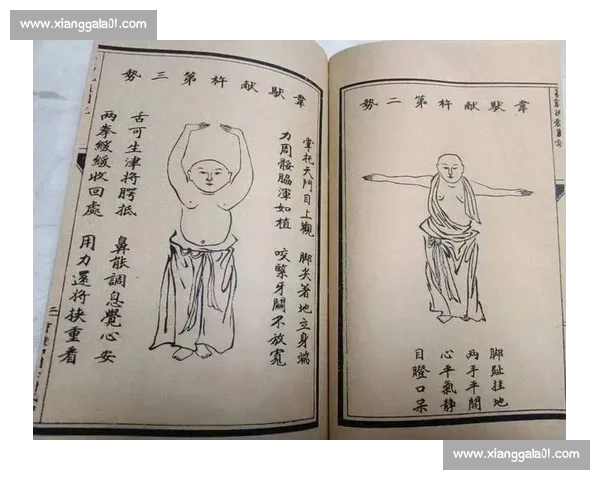 www.xianggala01.com
韋馱献杵第二勢
脚趾挂地
两手平開
心平氣静
目瞪口呆
韋馱献杵第三勢
掌托天門目上觀 脚尖著地立身端
力周骽脇渾如植 咬緊牙關不放寬
舌可生津將腭抵 鼻能調息覺心安
两拳緩緩收回處 用力還將挾重看
www.xianggala01.com